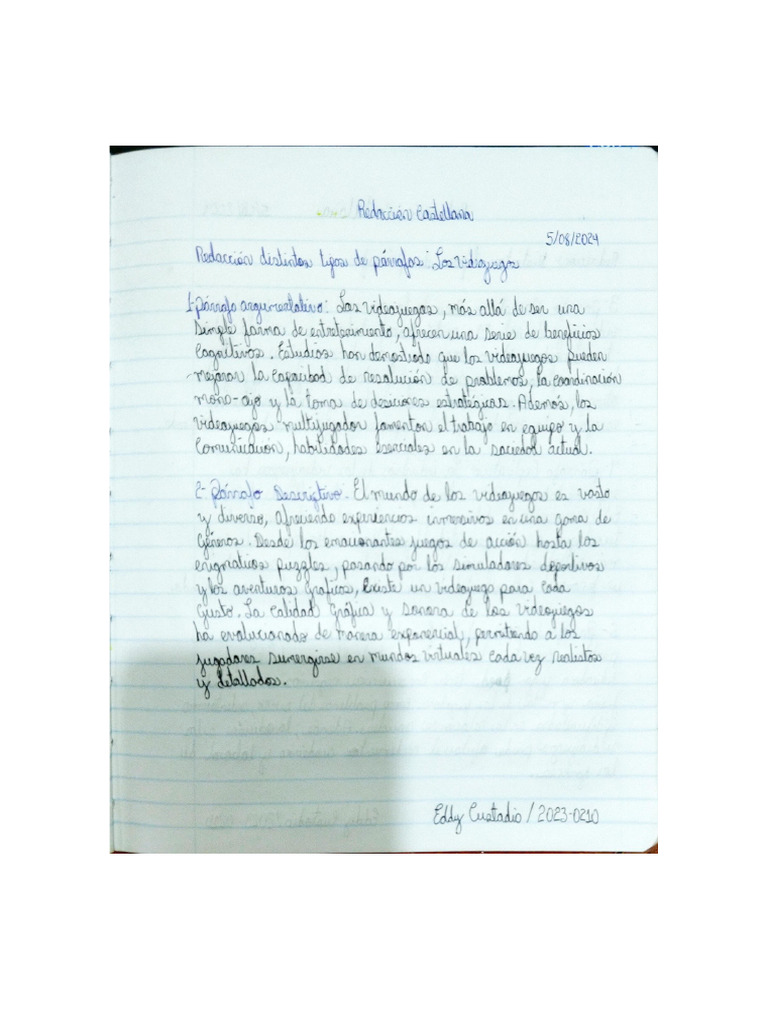 Redacción Castellana
5/08/2024
Redacción distintos tipos de párrafos: Los videojuegos
1-Párrafo argumentativo: Los videojuegos, más allá de ser una
simple forma de entretenimiento, ofrecen una serie de beneficios
Cognitivos. Estudios han demostrado que los videojuegos pueden
mejorar la capacidad de resolución de problemas, la coordinación
mano-ojo y la toma de desiciones estratégicas. Además, los
videojuegos multijugador fomentan el trabajo en equipo y la
Comunicación, habilidades esenciales en la sociedad actual.
2- Párrafo Descriptivo. El mundo de los videojuegos es vasto
y diverso, ofreciendo experiencias inmersivas en una gama de
Géneros. Desde los emocionantes juegos de acción hasta los
enigmaticos puzzles, pasando por los simuladores deportivos
y los aventuras Gráficas, Existe un videojuego para cada
Gusto. La Calidad Gráfica y sonora de los videojuegos
ha evolucionado de manera exponencial, permitiendo a los
jugadores sumergirse en mundos virtuales cada vez realistas
y detallados.
Eddy Custodio / 2023-0210